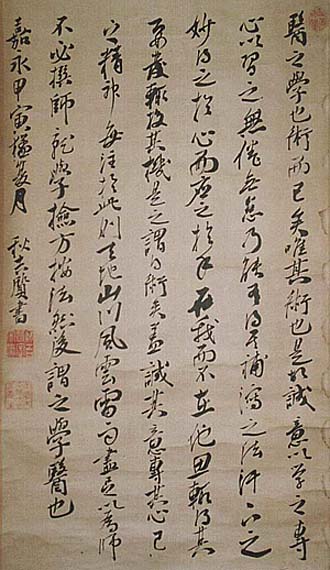 醫之學也術而已矣唯其術也是故誠意以學之專
心以習之無倦無怠乃能可得乎補瀉之法汗下之
妙得之於心而應之於手在我而不在他思輒得其
要發輒投其機是之謂得術矣蓋誠其意專其心己
之精神每注於此則天地山川風雲雷雨盡足以為師
不必撰師就學撿方按法然後謂之學醫也
嘉永甲寅 月 秋 書